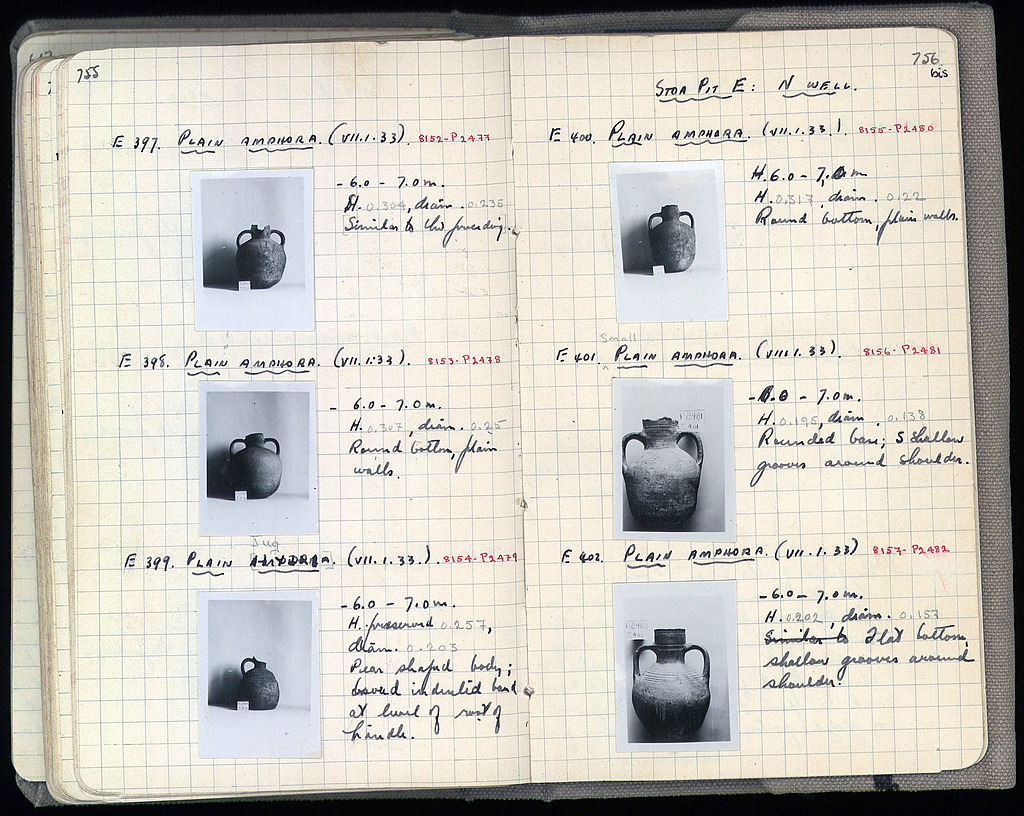 755
E 397. PLAIN AMPHORA. (VII.1.33). 8152-P2477
- 6.0 - 7.0 m.
H. 0.304, diam. 0.235
Similar to the preceding.
E 398. PLAIN AMPHORA. (VII.1.33). 8153-P2478
- 6.0 - 7.0 m.
H. 0.307, diam. 0.25
Round bottom, plain
walls.
Jug
E 399. PLAIN HYDRIA. (VII.1.33.). 8154-P2479
- 6.0 - 7.0 m.
H. preserved 0.257,
diam. 0.203
Pear shaped body;
band
at level of root of
handle.
756
bis
STOA PIT E: N WELL.
E 400. PLAIN AMPHORA. (VII.1.33). 8155-P2480
H. 6.0 - 7.0 m
H. 0.317, diam. 0.22
Round bottom, plain walls.
Small
E 401. PLAIN AMPHORA. (VIII.1.33). 8156-P2481
- 6.0 - 7.0 m.
H. 0.195, diam. 0.138
Rounded base; 5 shallow
grooves around shoulder.
P2481
401
E 402. PLAIN AMPHORA. (VII.1.33) 8157-P2482
- 6.0 - 7.0 m.
H. 0.202, diam. 0.157
Similar to Flat bottom,
shallow grooves around
shoulder.